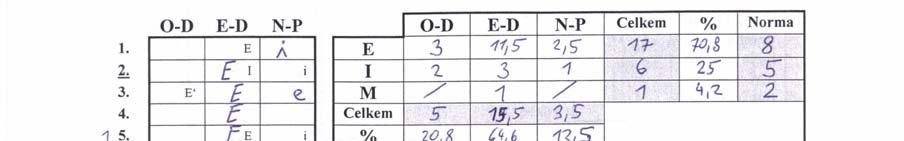 O-D E-D N-P
1. E i
2. E I i
3. E' E e
4. E
1 5. F E i
O-D E-D N-P Celkem % Norma
E 3 11,5 2,5 17 70,8 8
I 2 3 1 6 25 5
M / 1 / 1 4,2 2
Celkem 5 15,5 3,5
% 20,8 64,6 12,5